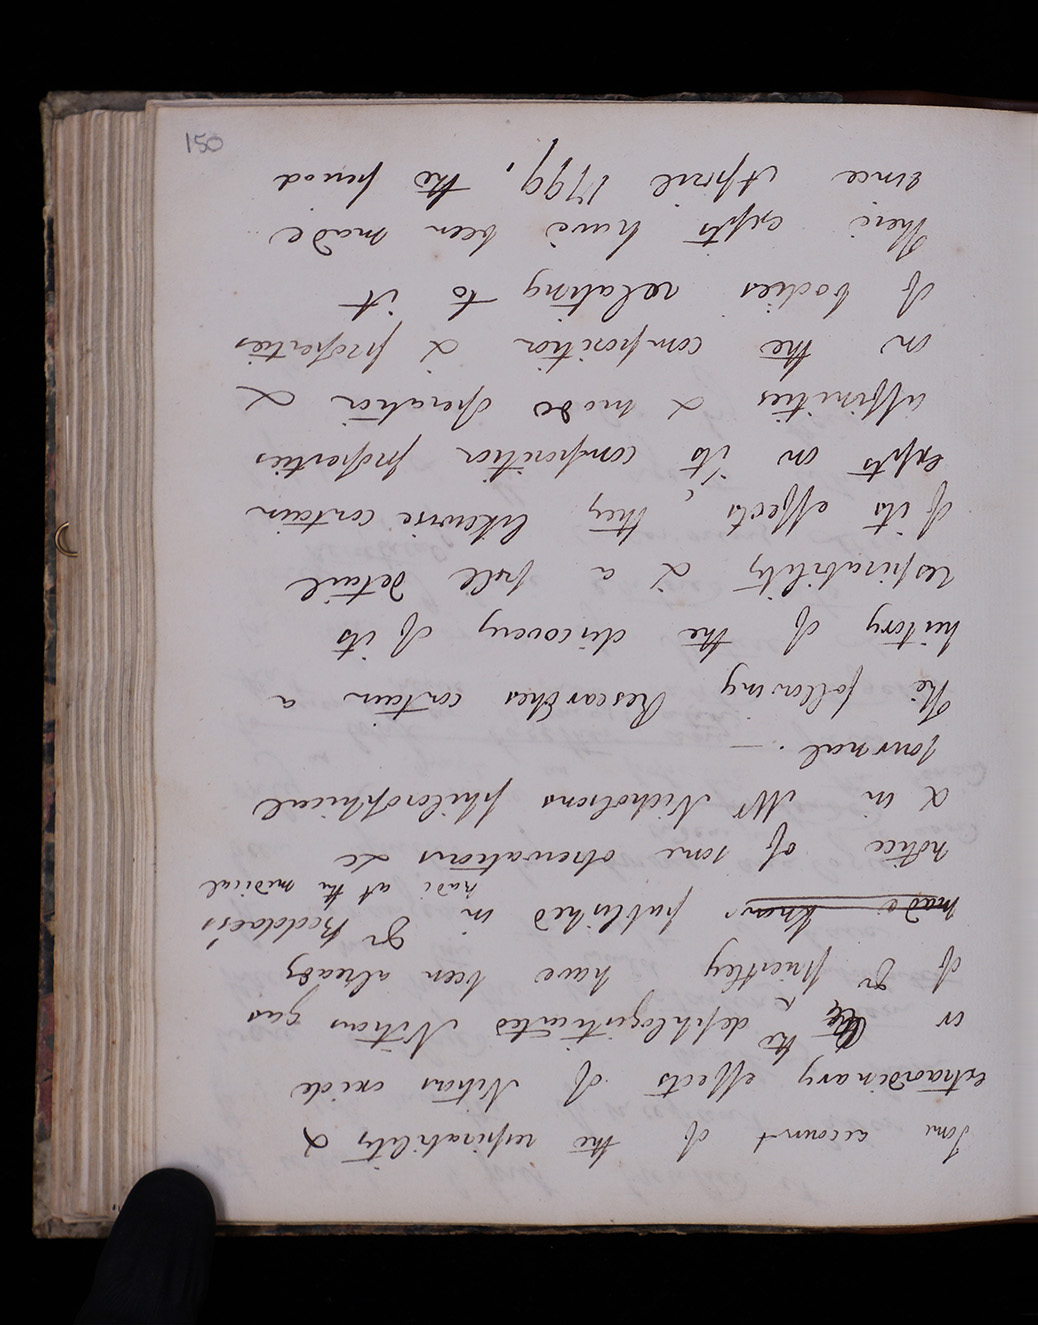 Some account of the respirability &
extraordinary effects of Nitrous oxide
or the dephlogisticated Nitrous gas
of Dr Priestley have been already
made known published in Dr Beddoes's
notice of some observations &c made at the medical
& in Mr Nicholsons philosophical
Journal. —
The following Researches contain a
history of the discovery of its
respirability & a full detail
of its effects, they likewise contain
expts on its composition properties
affinities & mode operation &
on the composition & properties
of bodies relating to it
These expts have been made
since April 1799, the period
150